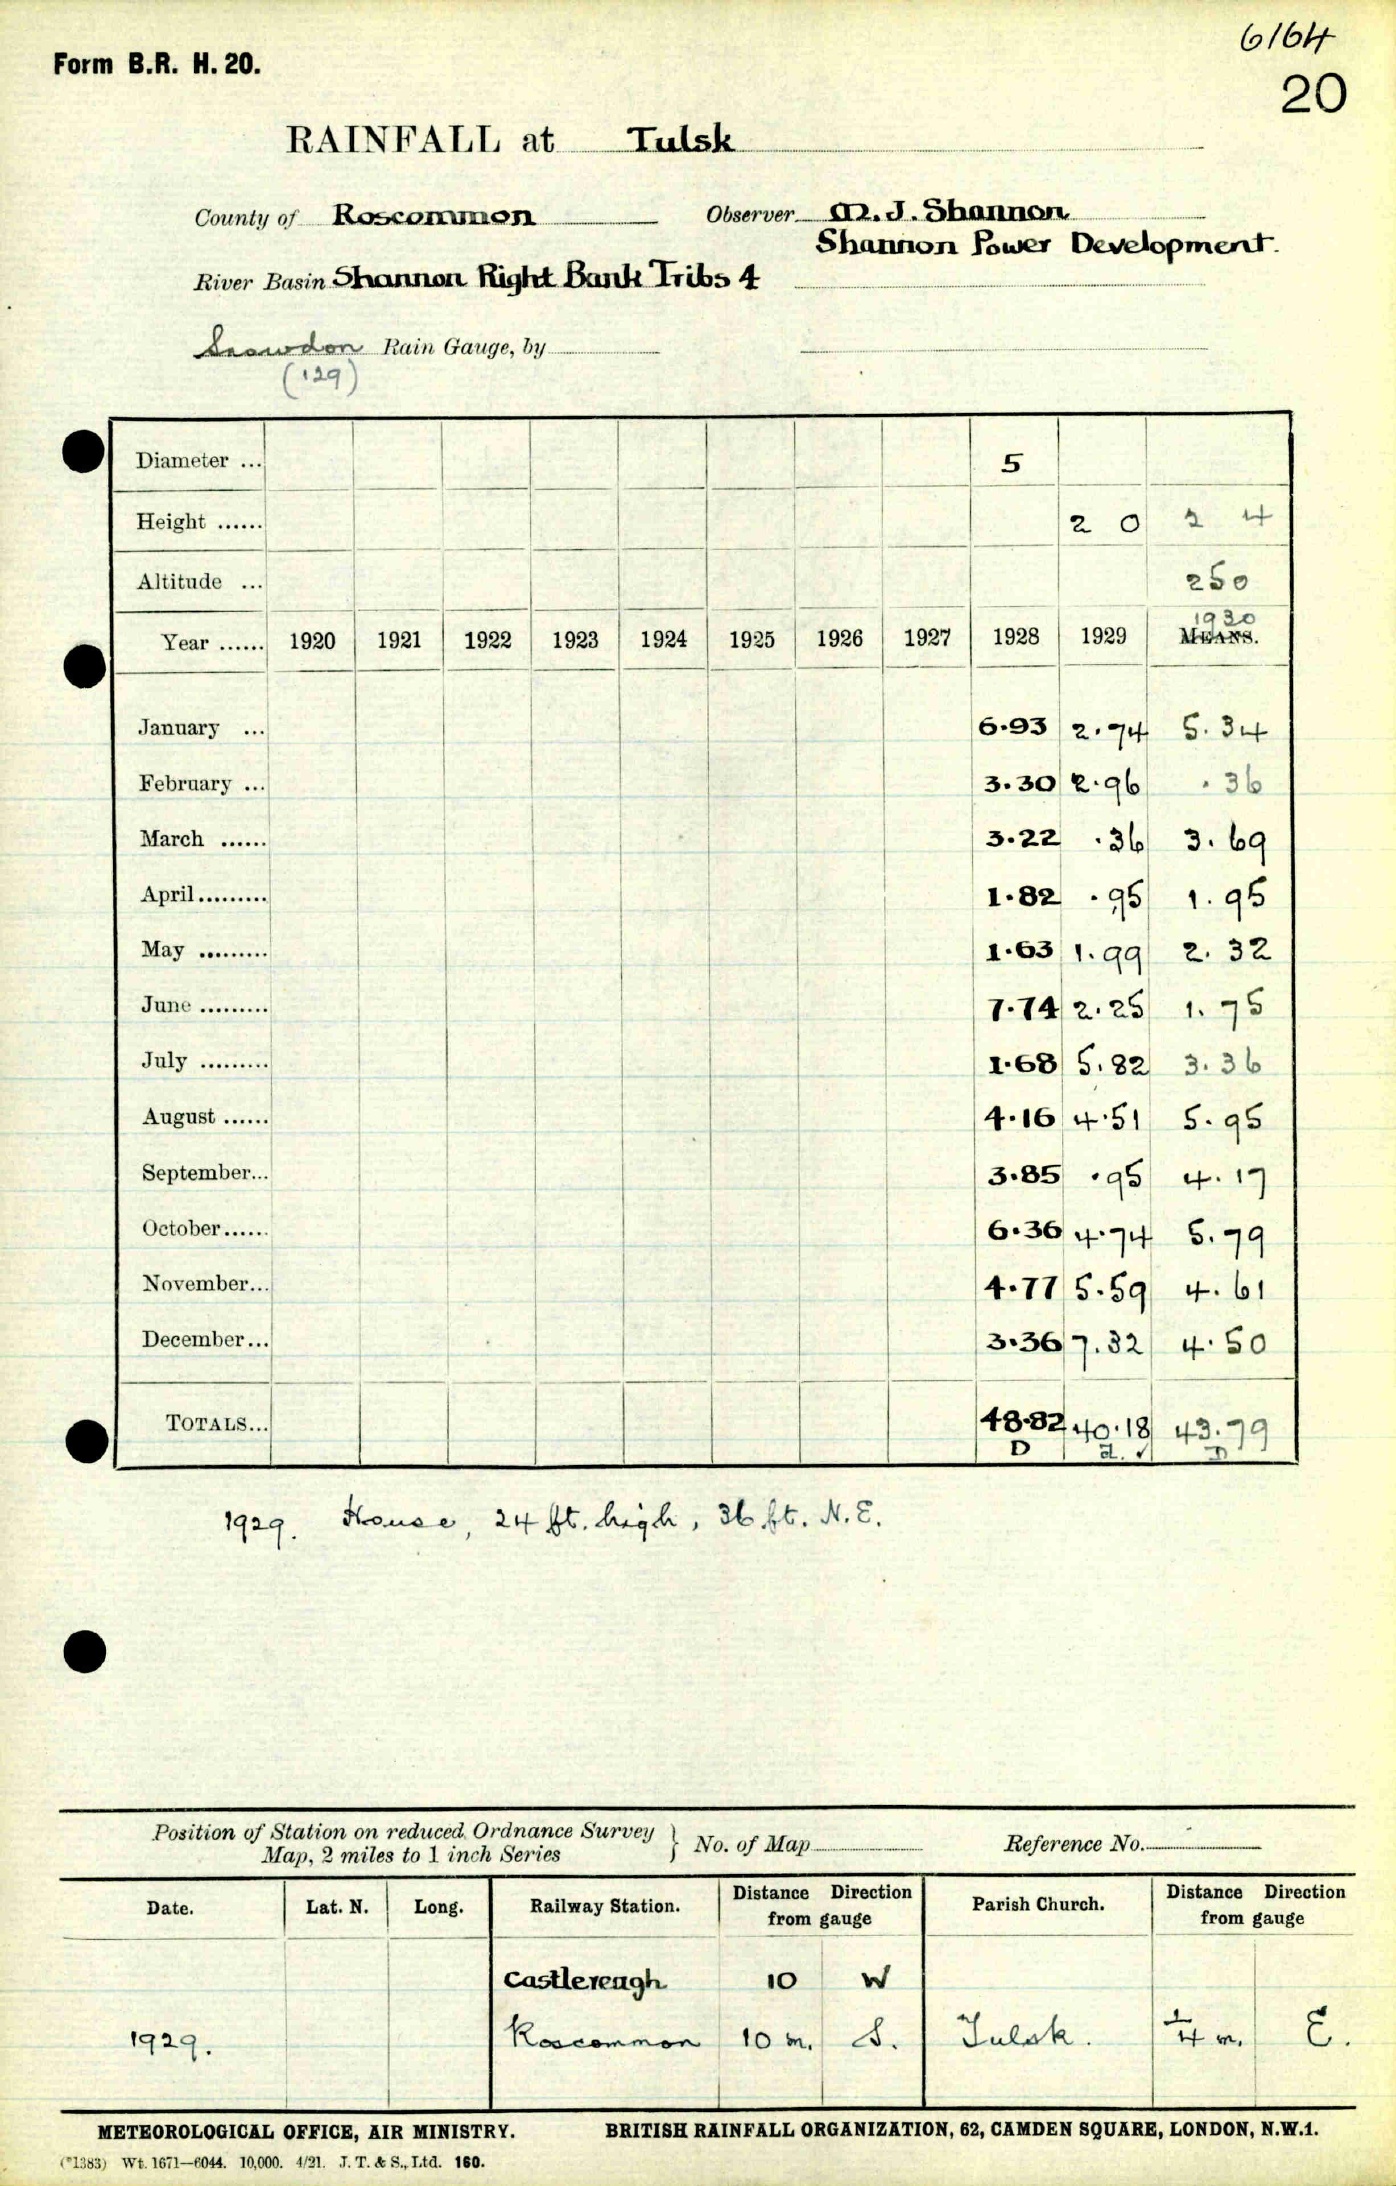 6164
Form B.R. H. 20.
20
RAINFALL at Tulsk
County of Roscommon Observer M. J. Shannon
Shannon Power Development.
River Basin Shannon Right Bank Tribs 4
Snowdon Rain Gauge, by
(129)
Diameter ... 5
Height ...... 2 0 2 4
Altitude ... 250
1930
Year ...... 1920 1921 1922 1923 1924 1925 1926 1927 1928 1929 MEANS.
January ... 6.93 2.74 5.34
February ... 3.30 2.96 .36
March ...... 3.22 .36 3.69
April ......... 1.82 .95 1.95
May ......... 1.63 1.99 2.32
June ......... 7.74 2.25 1.75
July ......... 1.68 5.82 3.36
August ...... 4.16 4.51 5.95
September... 3.85 .95 4.17
October...... 6.36 4.74 5.79
November... 4.77 5.59 4.61
December... 3.36 7.32 4.50
TOTALS... 48.82 40.18 43.79
D d. ✓ D
1929. House, 24 ft. high, 36 ft. N.E.
Position of Station on reduced Ordnance Survey
Map, 2 miles to 1 inch Series } No. of Map Reference No.
Date. Lat. N. Long. Railway Station. Distance Direction from gauge Parish Church. Distance Direction from gauge
Castlereagh 10 W
1929. Roscommon 10 m. S. Tulsk. 1/4 m. E.
METEOROLOGICAL OFFICE, AIR MINISTRY. BRITISH RAINFALL ORGANIZATION, 62, CAMDEN SQUARE, LONDON, N.W.1.
(*1383) Wt. 1671—6044. 10,000. 4/21. J. T. & S., Ltd. 160.